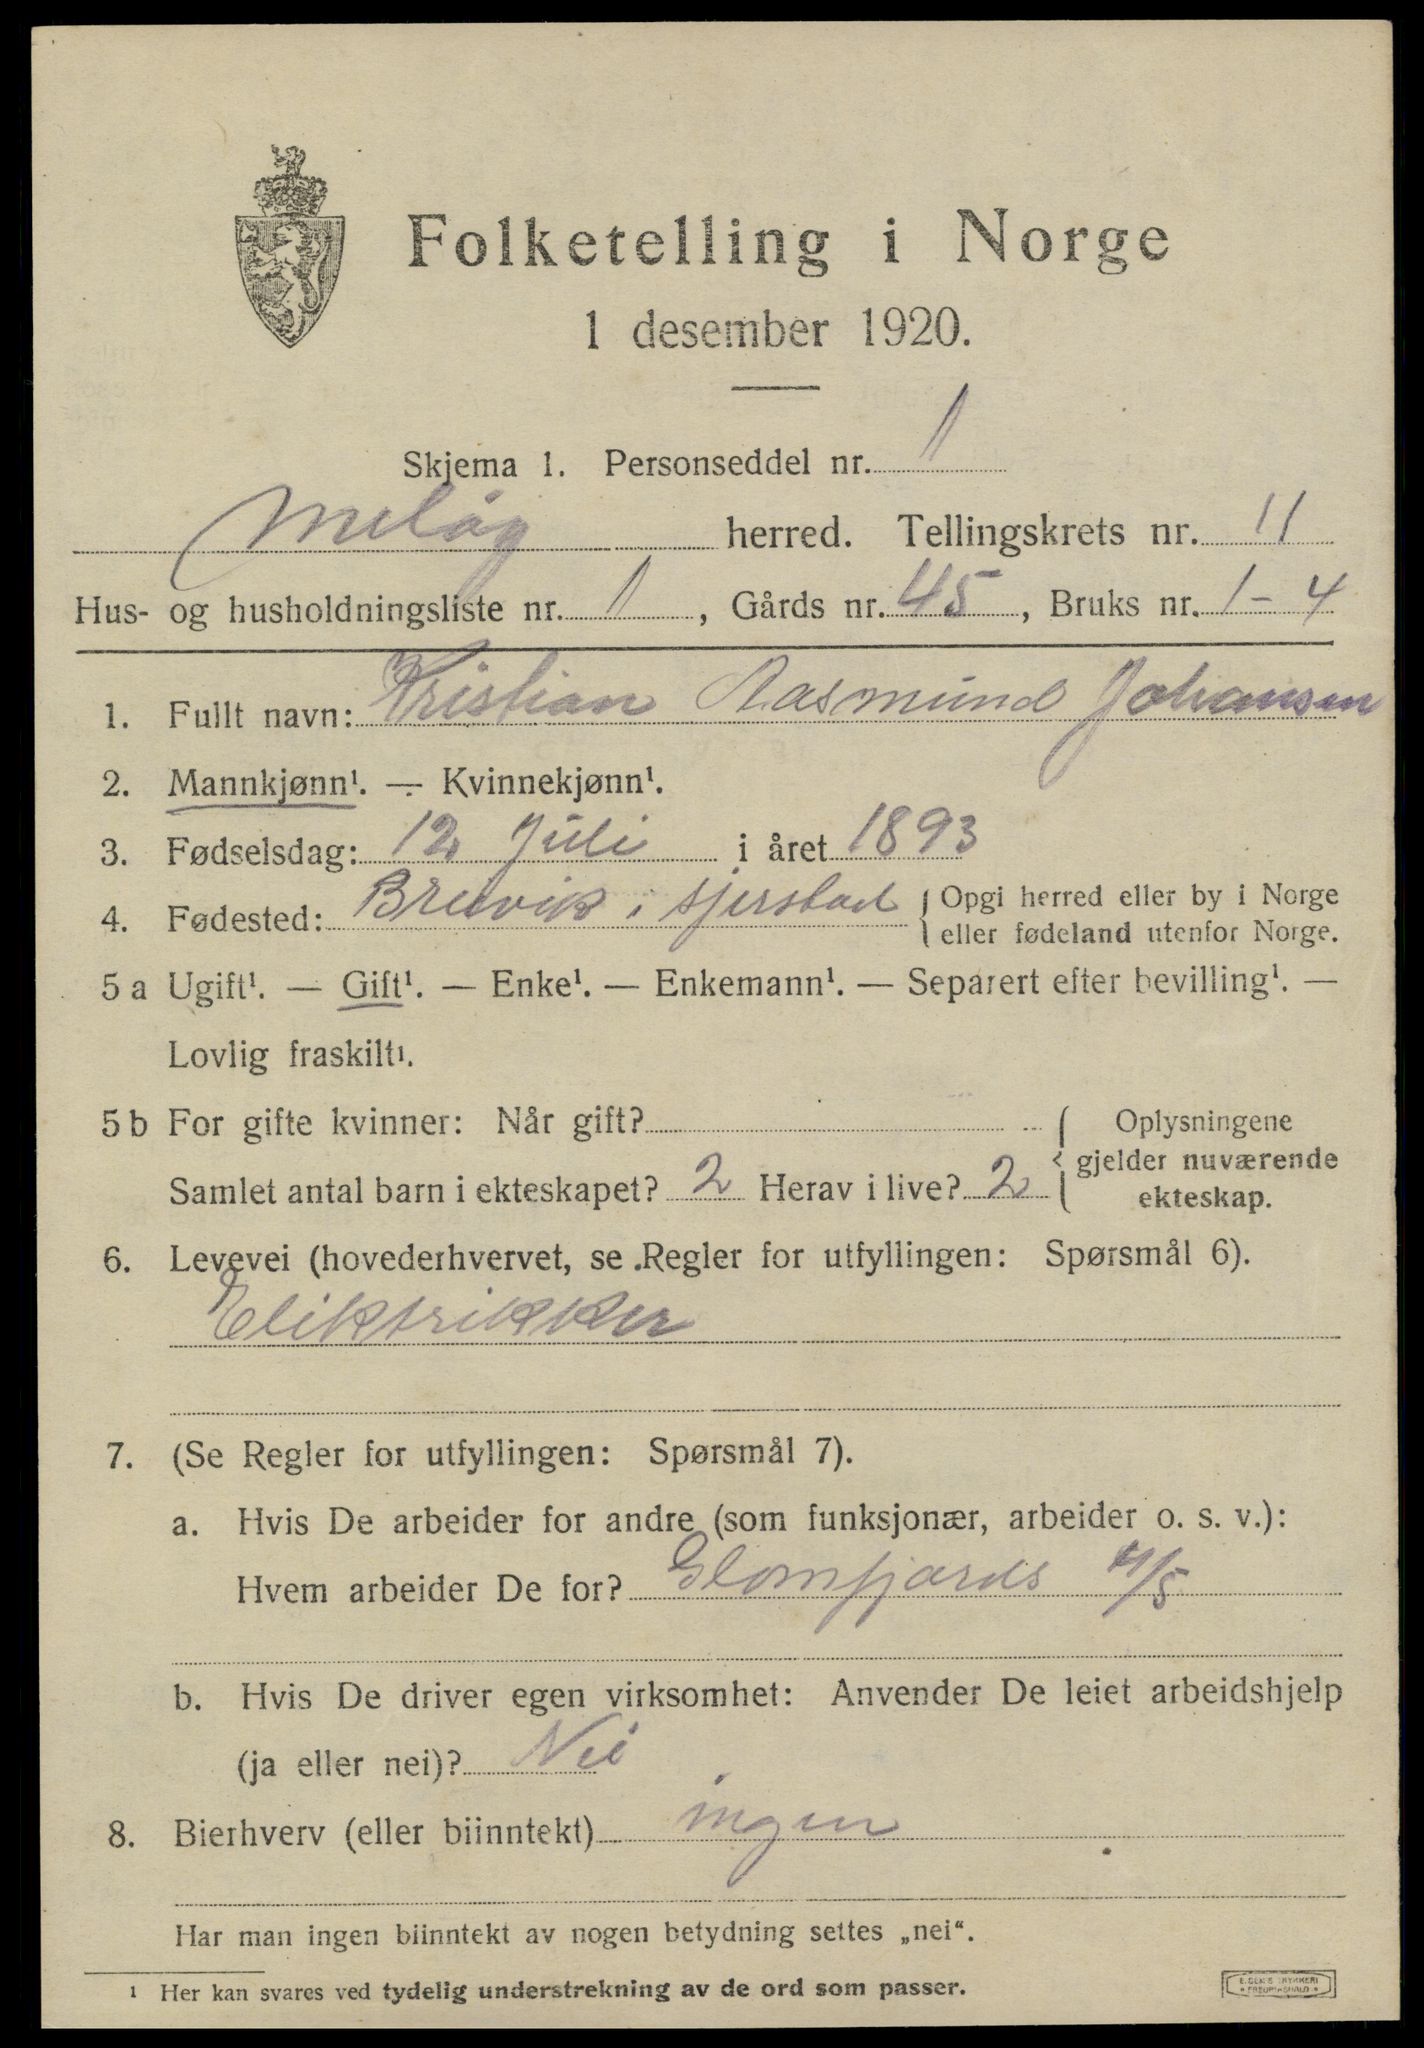 Folketelling i Norge
1 desember 1920.
Skjema 1. Personseddel nr. 1
Meløy herred. Tellingskrets nr. 11
Hus- og husholdningsliste nr. 1, Gårds nr. 45, Bruks nr. 1-4
1. Fullt navn: Kristian Aasmund Johansen
2. Mannkjønn¹. — Kvinnekjønn¹.
3. Fødselsdag: 12 Juli i året 1893
4. Fødested: Brevik i sjerstad { Opgi herred eller by i Norge
eller fødeland utenfor Norge.
5 a Ugift¹. — Gift¹. — Enke¹. — Enkemann¹. — Separert efter bevilling¹. —
Lovlig fraskilt¹.
5 b For gifte kvinner: Når gift?
Samlet antal barn i ekteskapet? 2 Herav i live? 2
{ Oplysningene
gjelder nuværende
ekteskap.
6. Levevei (hovederhvervet, se Regler for utfyllingen: Spørsmål 6).
Eliktrikker
7. (Se Regler for utfyllingen: Spørsmål 7).
a. Hvis De arbeider for andre (som funksjonær, arbeider o. s. v.):
Hvem arbeider De for? Glomfjords A/S
b. Hvis De driver egen virksomhet: Anvender De leiet arbeidshjelp
(ja eller nei)? Nei
8. Bierhverv (eller biinntekt) ingen
Har man ingen biinntekt av nogen betydning settes „nei“.
¹ Her kan svares ved tydelig understrekning av de ord som passer.